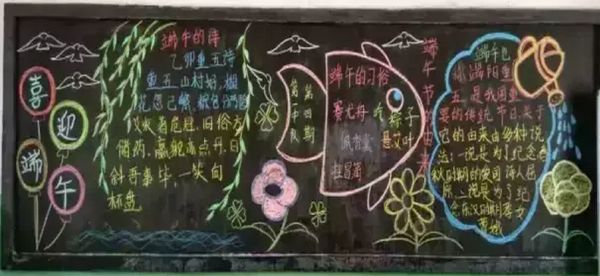 喜
迎
端
午
端午的诗
乙卯重五诗
重五山村好,榴
花忽已繁。粽包分两
髻,艾束著危冠。旧俗方
储药,羸躯亦点丹。日
斜吾事毕,一笑向
杯盘
第四期
第一期
端午的习俗
赛龙舟 吃粽子
佩香囊 悬艾叶
挂菖蒲
端午节的由来
端午也
称端阳,重
五,是我国重
要的传统节日,关于
它的由来由多种说
法:一说是为了纪念春
秋时期的爱国诗人屈
原。又说是为了纪
念东汉的
曹娥